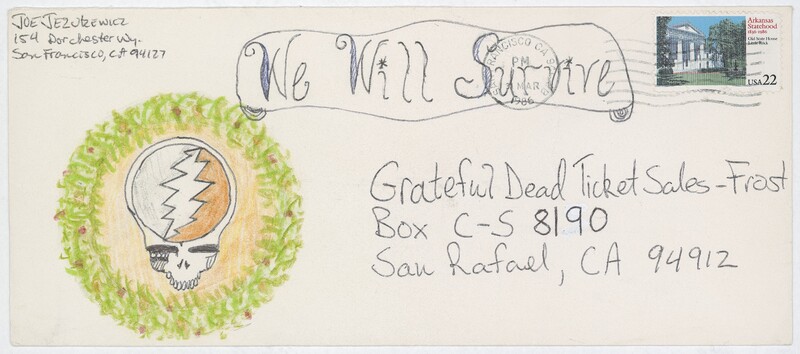 JOE JEZUKEWICZ
154 Dorchester Wy.
San Francisco, CA 94127
We Will Survive
FRANCISCO CA
PM
MAR
1986
Arkansas
Statehood
1836-1986
Old State House
Little Rock
USA 22
Grateful Dead Ticket Sales-Frost
Box C-S 8190
San Rafael, CA 94912